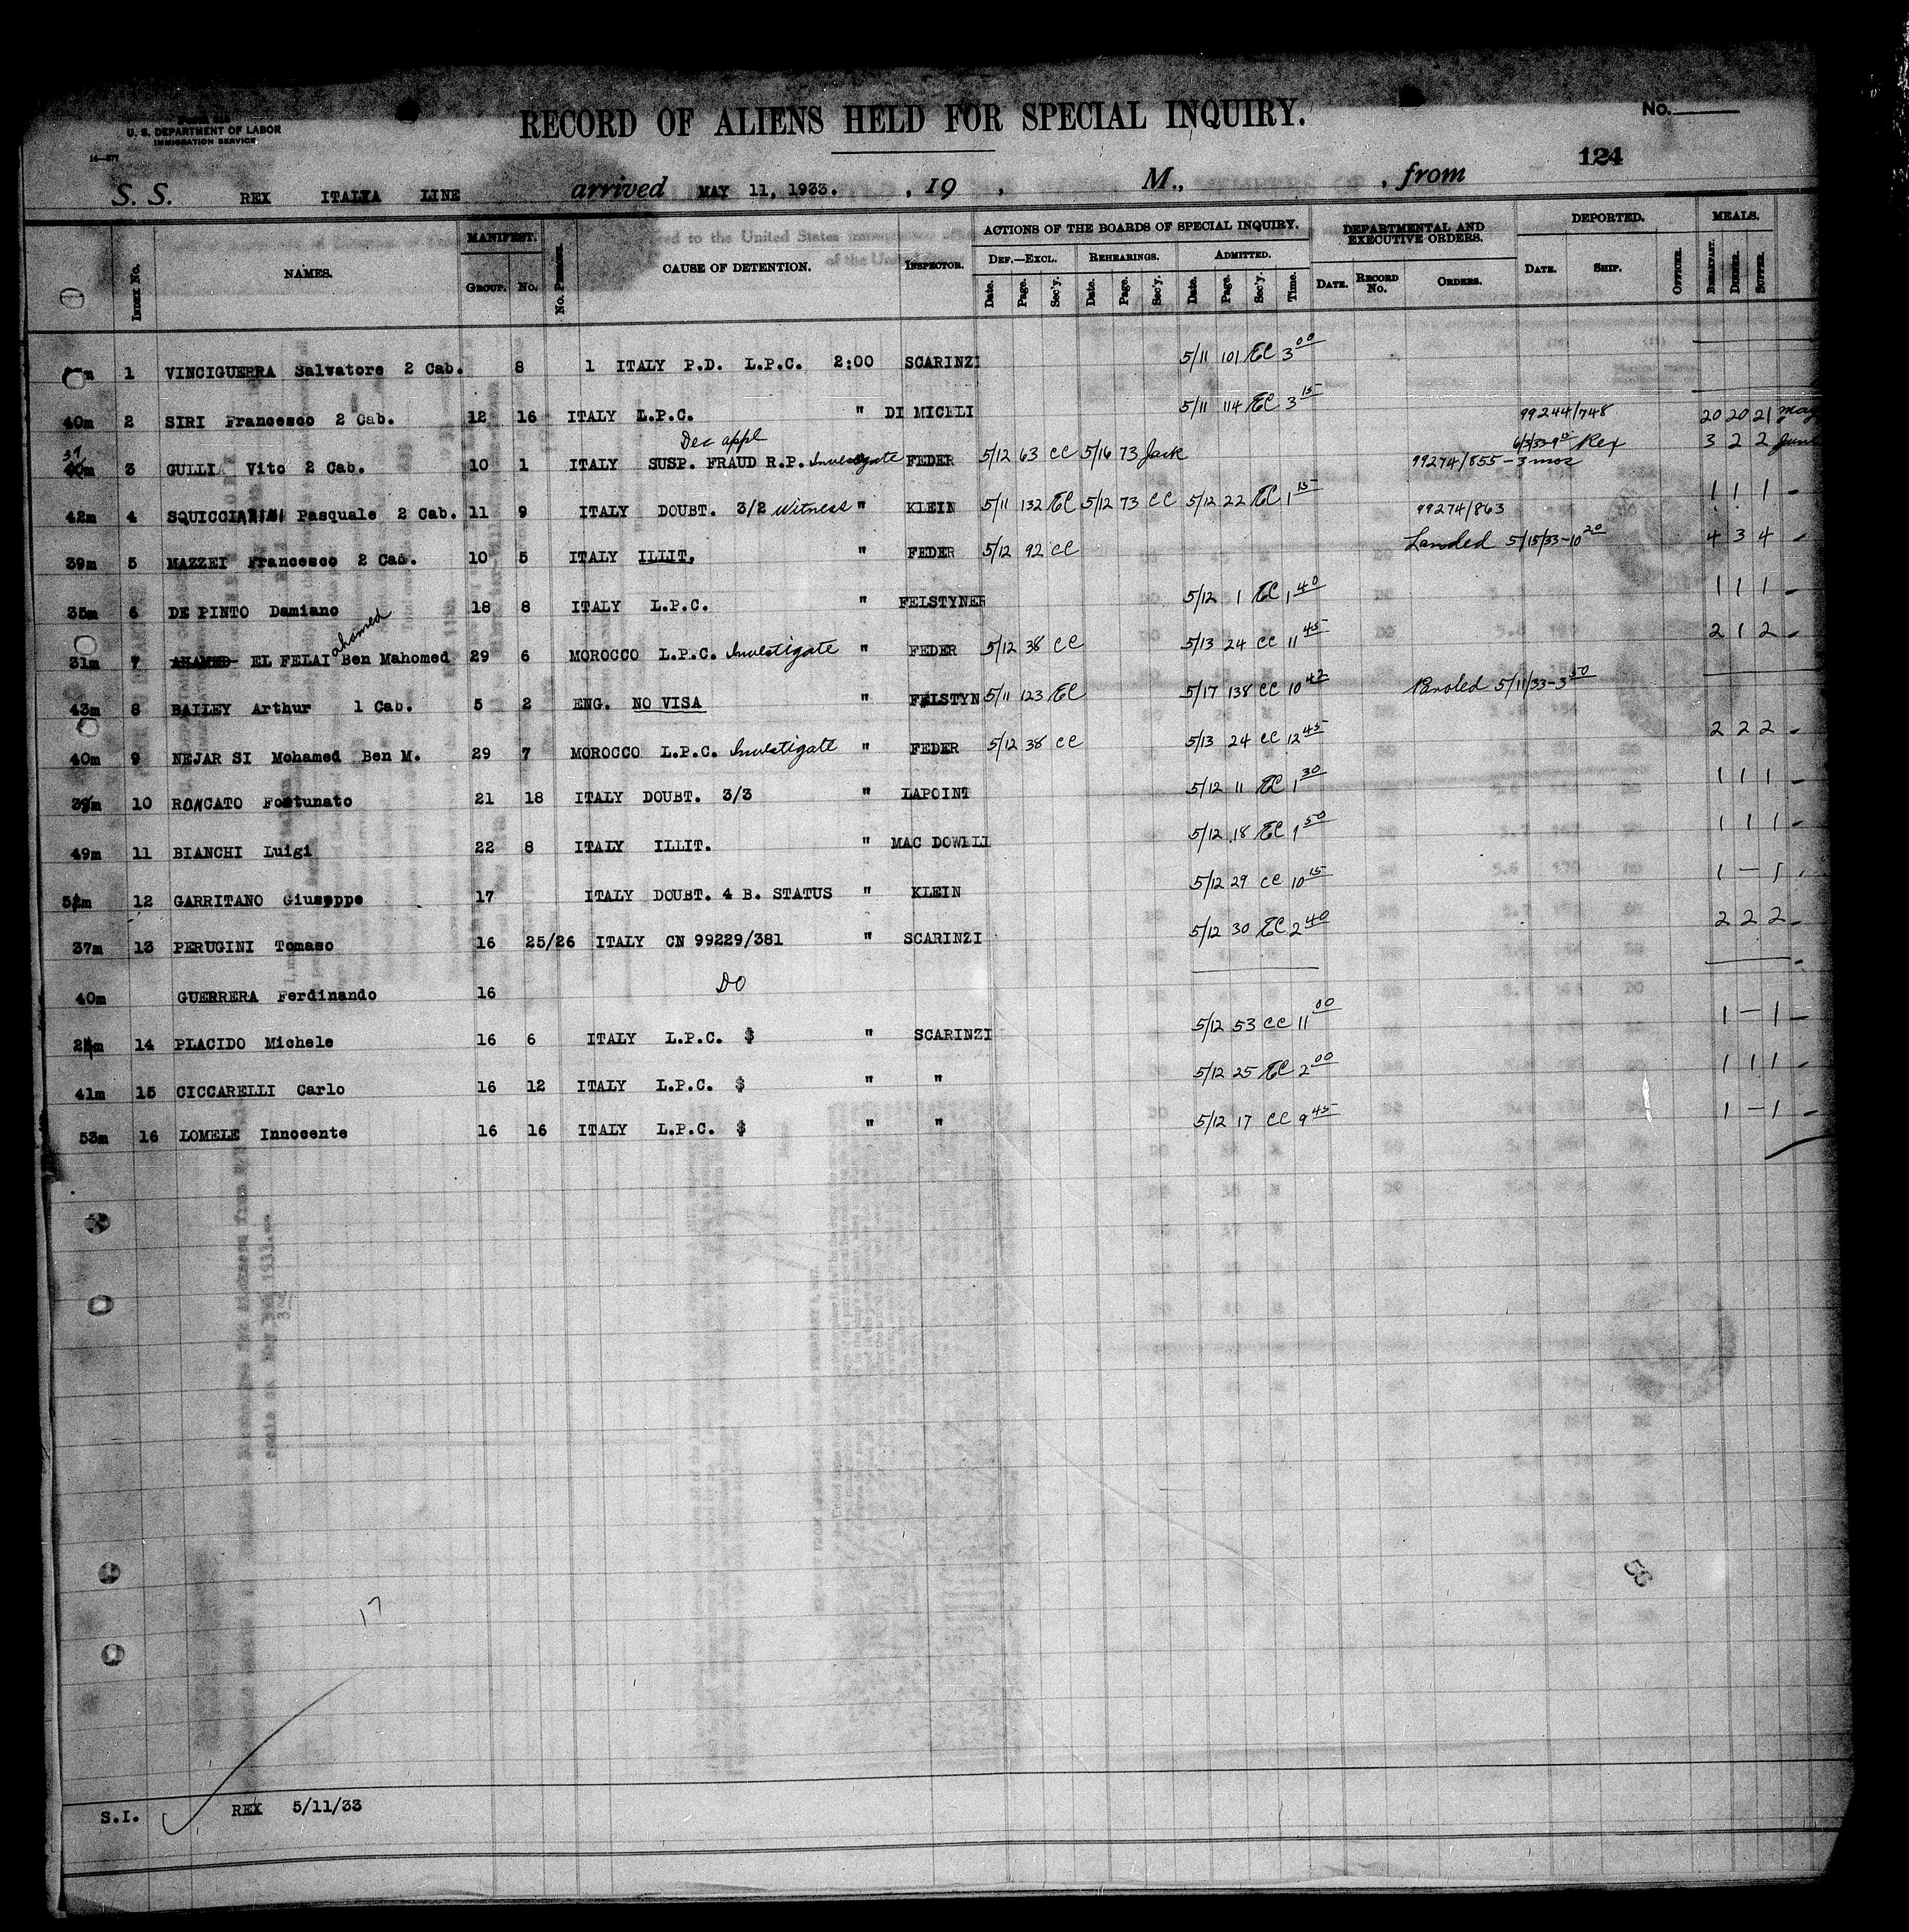 RECORD OF ALIENS HELD FOR SPECIAL INQUIRY.
No.
U. S. DEPARTMENT OF LABOR
IMMIGRATION SERVICE
124
S. S. REX ITALIA LINE arrived MAY 11, 1933. , 19 , M., , from
INDEX No. NAMES. MANIFEST. GROUP. No. No. PERSONS. CAUSE OF DETENTION. INSPECTOR. ACTIONS OF THE BOARDS OF SPECIAL INQUIRY. DEPARTMENTAL AND EXECUTIVE ORDERS. DEPORTED. MEALS.
DEF.—EXCL. REHEARINGS. ADMITTED.
Date. Page. Sec'y. Date. Page. Sec'y. Date. Page. Sec'y. Time. DATE. RECORD No. ORDERS. DATE. SHIP. OFFICER. BREAKFAST. DINNER. SUPPER.
1 VINCIGUERRA Salvatore 2 Cab. 8 1 ITALY P.D. L.P.C. 2:00 SCARINZI 5/11 101 EC 3 00
40m 2 SIRI Francesco 2 Cab. 12 16 ITALY L.P.C. " DI MICELI 5/11 114 EC 3 15
99244/748 20 20 21 May
Dec appl 6/3/33 Rex 3 2 2 June
3 GULLI Vito 2 Cab. 10 1 ITALY SUSP. FRAUD R.P. Investigate FEDER 5/12 63 CC 5/16 73 Jack 99274/855 - 3 mos
42m 4 Pasquale 2 Cab. 11 9 ITALY DOUBT. 3/2 Witness " KLEIN 5/11 132 EC 5/12 73 CC 5/12 22 EC 1 15 99274/863 1 1 1 -
39m 5 MAZZEI Francesco 2 Cab. 10 5 ITALY ILLIT. " FEDER 5/12 92 CC Landed 5/15/33-10 20 4 3 4 -
35m 6 DE PINTO Damiano 18 8 ITALY L.P.C. " FELSTYNER 5/12 1 EC 1 40 1 1 1 -
ahamed
31m 7 EL FELAI Ben Mahomed 29 6 MOROCCO L.P.C. Investigate " FEDER 5/12 38 CC 5/13 24 CC 11 45 2 1 2 -
43m 8 BAILEY Arthur 1 Cab. 5 2 ENG. NO VISA " FELSTYN 5/11 123 EC 5/17 138 CC 10 42 Paroled 5/11/33-3 50
40m 9 NEJAR SI Mohamed Ben M. 29 7 MOROCCO L.P.C. Investigate " FEDER 5/12 38 CC 5/13 24 CC 12 45 2 2 2 -
10 RONCATO Fortunato 21 18 ITALY DOUBT. 3/3 " LAPOINT 5/12 11 EC 1 30 1 1 1 -
49m 11 BIANCHI Luigi 22 8 ITALY ILLIT. " MAC DOWELL 5/12 18 EC 1 50 1 1 1 -
12 GARRITANO Giuseppe 17 ITALY DOUBT. 4 B. STATUS " KLEIN 5/12 29 CC 10 15 1 - 1
37m 13 PERUGINI Tomaso 16 25/26 ITALY CN 99229/381 " SCARINZI 5/12 30 EC 2 40 2 2 2 -
40m GUERRERA Ferdinando 16 DO
14 PLACIDO Michele 16 6 ITALY L.P.C. $ " SCARINZI 5/12 53 CC 11 00 1 - 1 -
41m 15 CICCARELLI Carlo 16 12 ITALY L.P.C. $ " " 5/12 25 EC 2 00 1 1 1 -
53m 16 LOMELE Innocente 16 16 ITALY L.P.C. $ " " 5/12 17 CC 9 45 1 - 1 -
56
17
S.I. REX 5/11/33